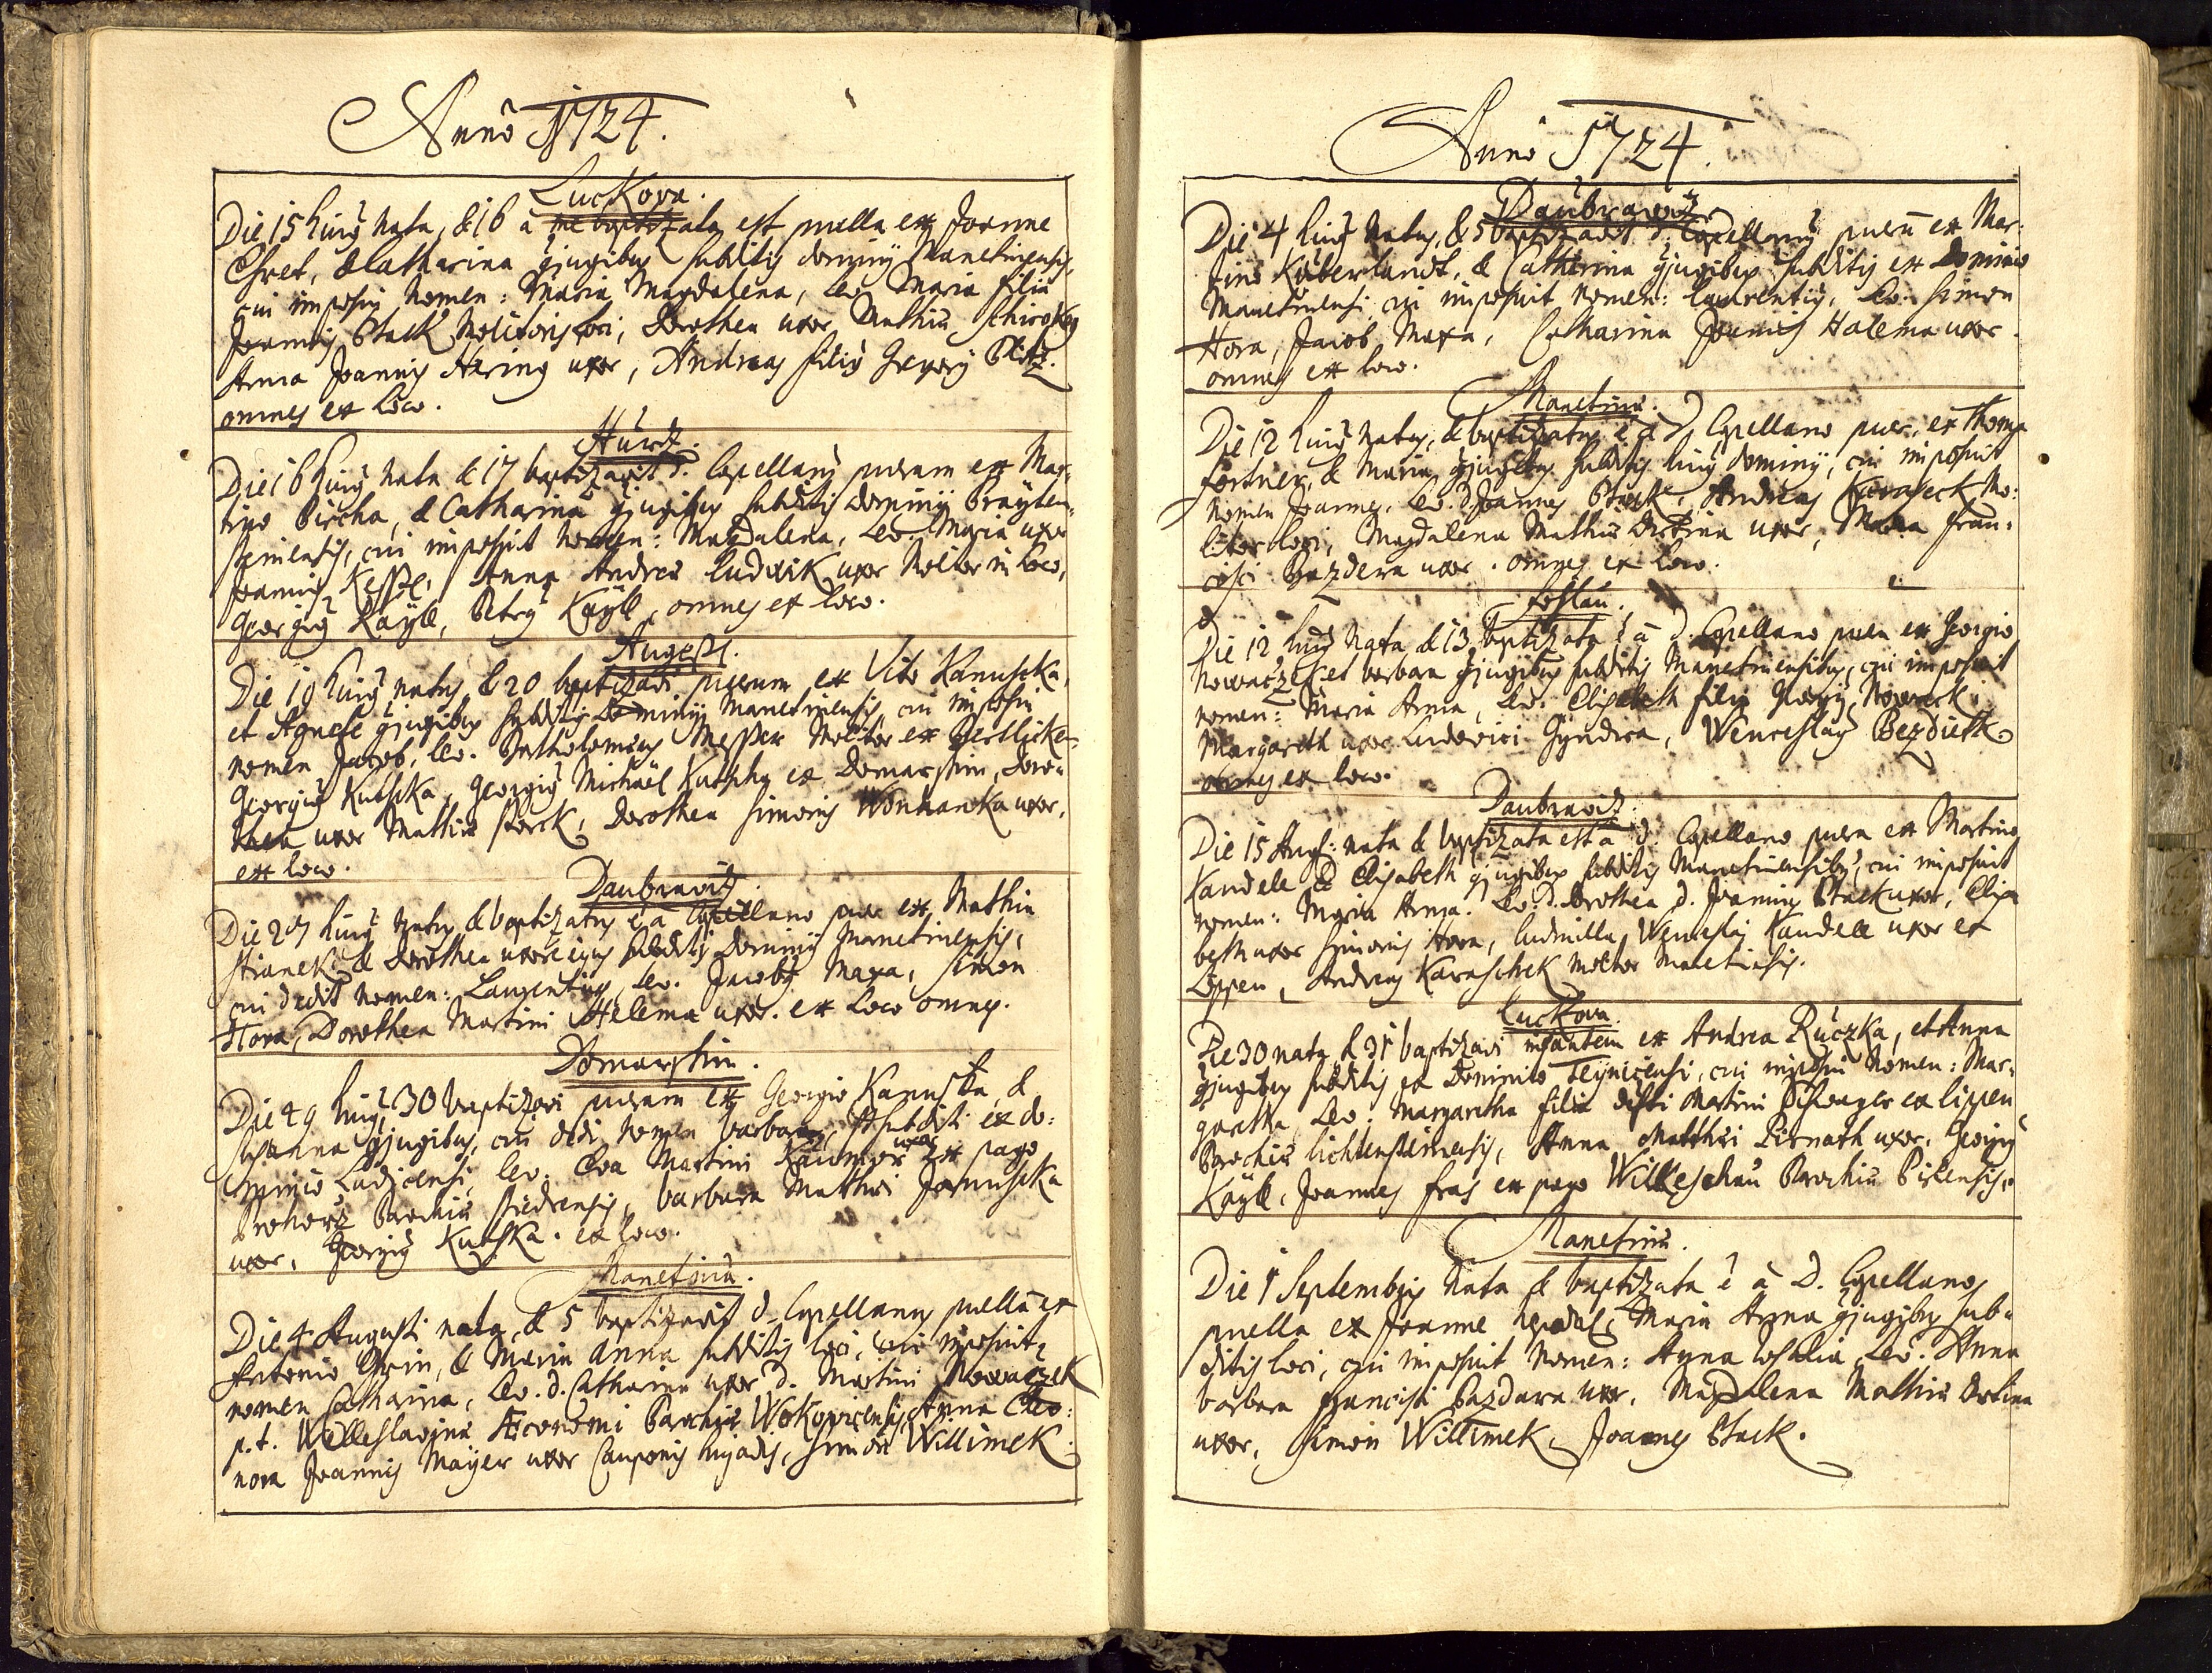 Anno 1724.
Luckova.
Die 15 huig nata, & 16 â me baptizata est puella ex Joanne
Chret, & Catharina gjugibus subditis dominij Manetinensis,
cui imposui nomen: Maria Magdalena, Lev. Maria filia
Joannis Stack Molitoris loci, Dorothea uxor Mathiæ Schirokÿ
Anna Joannis Hering uxor, Andreas filig Georgij Plotz.
omnes ex loco.
Hurtz.
Die 16 huig nata & 17 baptizavit d. Capellang puellam ex Mar-
tino Pircha, & Catharina gjugibus subditis Dominij Breÿten-
steinensis, cui imposuit nomen: Magdalena, Lev. Maria uxor
Joannis Kessl, Anna Andreæ Ludwik uxor Molitor in loco,
Georgig Kaÿll, Petrg Kaÿll, omnes ex loco.
Augessl.
Die 19 huig natus & 20 baptizavi puerum ex Vito Kanuscka,
et Agnete gjugibus subditis Dominij Manetinensis, cui imposui
nomen Jacob, lev. Bartholomeus Messer Molitor ex
Georgig Kutscka, Georgig Michaël Kutschka ex Domaschin, Doro-
thea uxor Mathiæ storck, Dorothea Simonis Wonhanka uxor,
ex loco.
Daubrawitz.
Die 27 huig natus & baptizatus ê â Capellano puer ex Mathia
Stianek & Dorothea uxore ejus subditis Dominij Manetinensis,
cui dedit nomen: Laurentius, lev. Jacobg Maxa, Simon
Hora, Dorothea Martini Helema uxor. ex loco omnes.
Domaschin.
Die 29 huig, 30 baptizavi puellam ex Georgio Kanuska, &
Susanna gjugibus, cui dedi nomen barbara, subditi ex do-
minio Ludicensi, lev. Eva Martini uxor ex pago
Prohorz Parochiæ stiedrensis, barbara Mathæi Jarnuscka
uxor, Georgig Kutska. ex loco.
Manetinii.
Die 4 Augusti nata, & 5 baptizavit d. Capellanus puellã ex
Antonio , & Maria Anna subditis loci, cui imposuit
nomen Catharina, Lev. d. Catharina uxor d. Martini Nowaczek
p.t. Welleslavinæ Æconomi Parochiæ Wokovicensis, Anna Eleo-
nora Joannis Maÿer uxor Cauponis hujatis, Simon Willimek.
Anno 1724.
Daubrawitz.
Die 4 huig natus, & 5 baptizavit d. Capellang puerũ ex Mar-
tino Kuberlandt, & Catharina gjugibus subditis ex Dominio
Manetinensi, cui imposuit nomen: Laurentig, Lev. Simon
Hora, Jacob Maxa, Catharina Joannis Halema uxor.
omnes ex loco.
Manetinii.
Die 12 huig natus, & baptizatus ê â D. Capellano puer, ex Thoma
Fortner, & Maria gjugibus subditis hujg dominij, cui imposuit
nomen Joannes, Lev. d. Joannes Stack, Andreas Karaseck Mo-
litor loci, Magdalena Mathiæ Dratina uxor, Maria Fran-
cisci Bazdera uxor. omnes ex loco.
Lostau.
Die 12 huig nata & 13 baptizata ê â d. Capellano puella ex Georgio
Nowaczek et barbara gjugibus subditis Manetinensibus, cui imposuit
nomen: Maria Anna, Lev. Elisabeth filia Georgij Nowacek
Margareth uxor Ludovici Gÿndra, Wenceslaus Bezdiek
omnes ex loco.
Daubrawitz.
Die 15 Aug: nata & baptizata est â d. Capellano puella ex Martino
Kandele & Elisabeth gjugibus subditis Manetinensibus, cui imposuit
nomen: Maria Anna. Lev. d. Dorothea d. Joannis Stack uxor, Elisa-
beth uxor Simonis Hora, Ludmilla Wenceslai Kandele uxor ex
Lippen, Andreas Karaschek Molitor Manetinensis.
Luckova.
Die 30 nata & 31 baptizavi infantem ex Andrea Ruczka, et Anna
gjugibus subditis ex Dominio Teÿnicensi, cui imposui nomen: Mar-
garetha, Lev: Margaretha filia Martini ex Lippen
Parochiæ Lichtensteinensis, Anna Matthæi Pirnath uxor, Georgig
Kaÿll, Joannes fras ex pago Willkeschau Parochiæ Pirkensis.
Manetinii.
Die 1 Septembris nata & baptizata ê â D. Capellano
puella ex Joanne Nepodal, Maria Anna gjugibus sub-
ditis loci, cui imposuit nomen: Anna Rosalia, Lev. Anna
barbara Francisci Bazdara uxor, Magdalena Mathiæ Dratina
uxor, Simon Willimek, Joannes Stack.